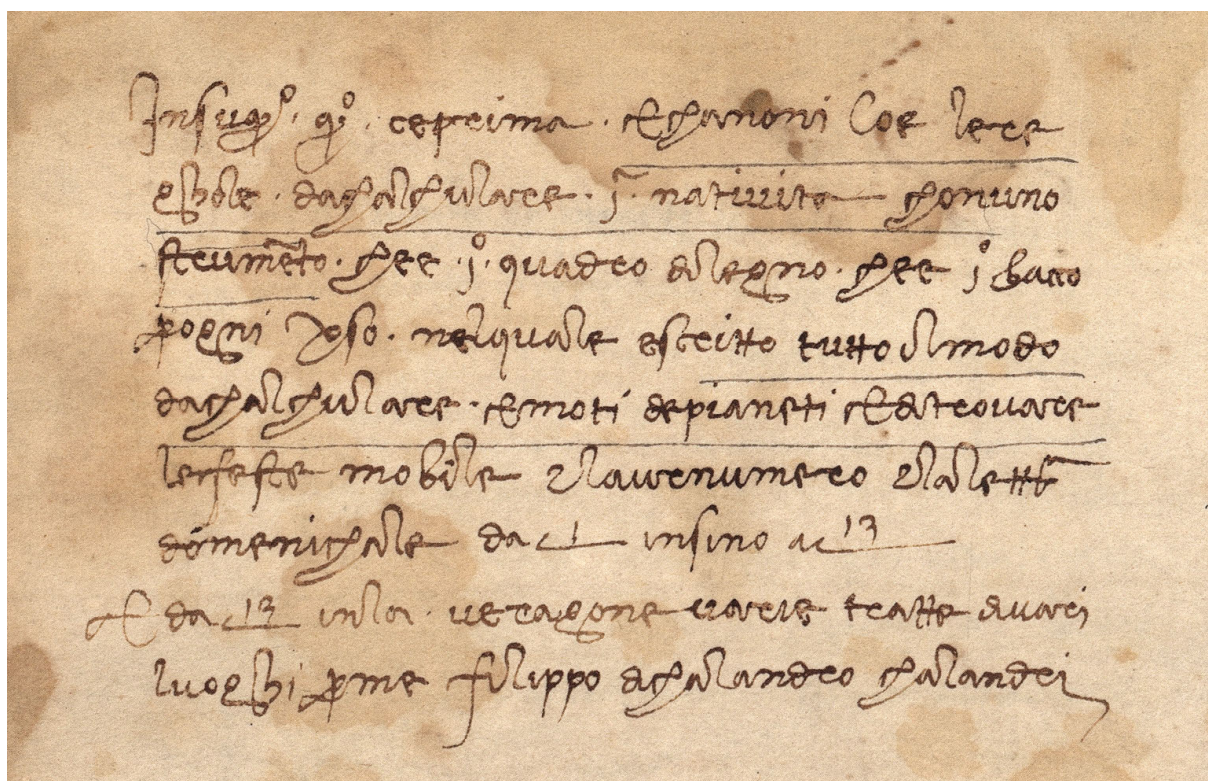 Insup^o. q^o. c e prima. e chanoni Coe le re
ghole. da chalchulare. j^a. nativita chonuno
strume̅to. ch e e. j^o. quadro di legno. ch e e j^o bacco
p ogni verso. nel quale e scritto tutto il modo
da chalchulare. e moti de pianeti e di trovare
le feste mobile e l aureo numero e la lettera
domenichale da 1 insino a 13
E da 13 in la. ve ragone varie tratte di vari
luoghi p me filippo di chalandro chalandri